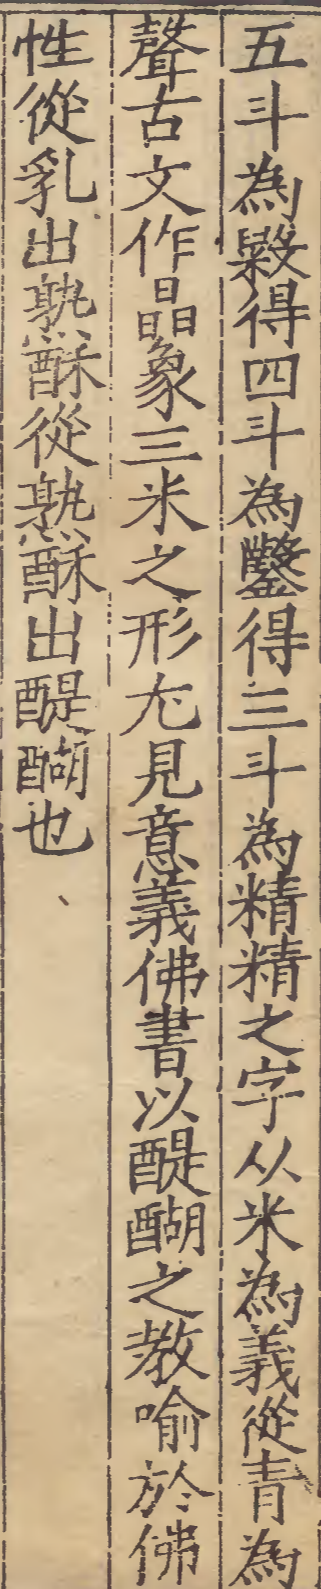 五斗為毇得四斗為鑿得三斗為精精之字从米為義從青為
聲古文作晶象三米之形尢見意義佛書以醍醐之教喻於佛
性從乳出熟酥從熟酥出醍醐也